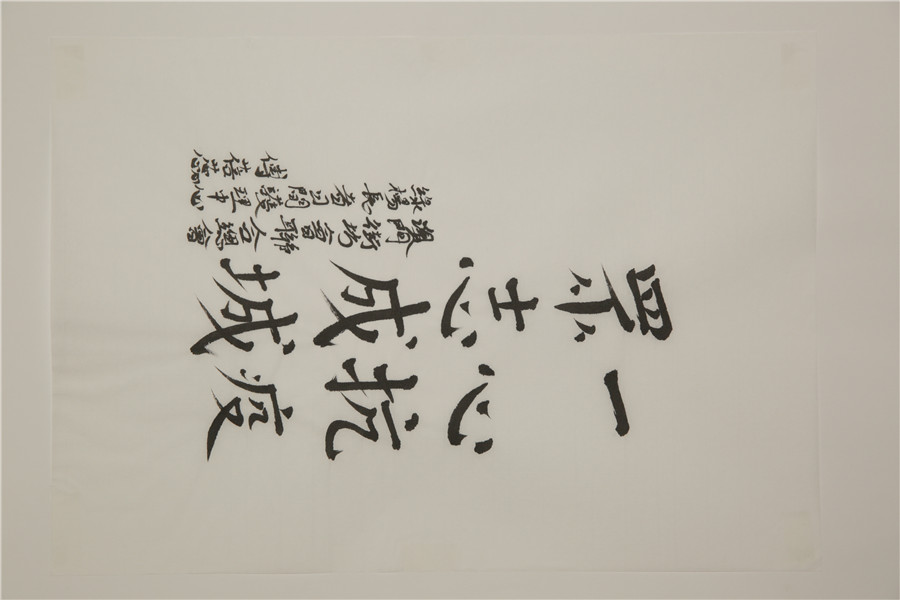 一心抗疫
眾志成城
澳門街坊會聯合總會
綠楊長者日間護理中心